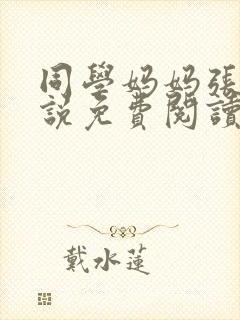 同學妈妈張
說免費閱讀
戴水蓮